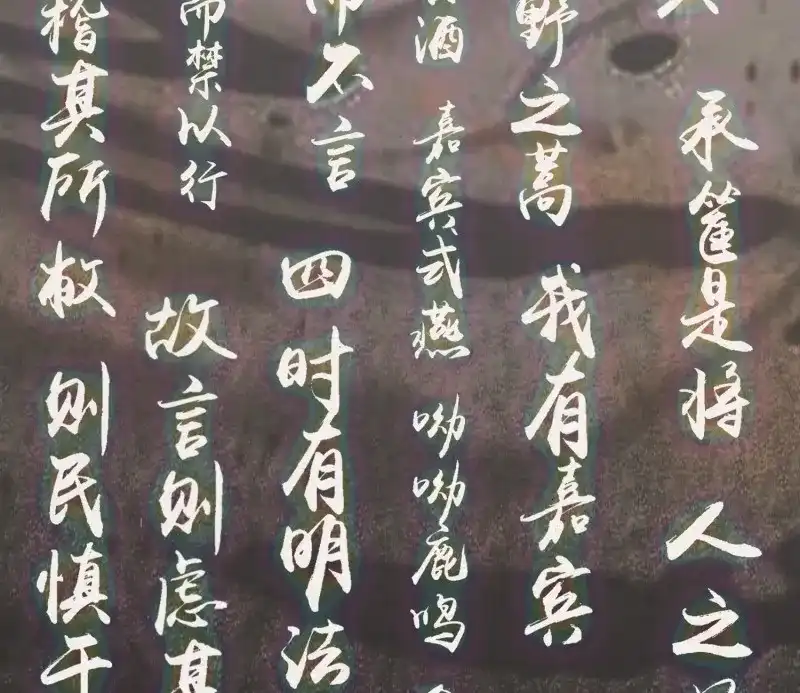 承筐是将 人之
野之蒿 我有嘉宾
酒 嘉宾式燕 呦呦鹿鸣
而不言 四时有明法
而禁以行 故言则虑其
稽其所敝 则民慎于